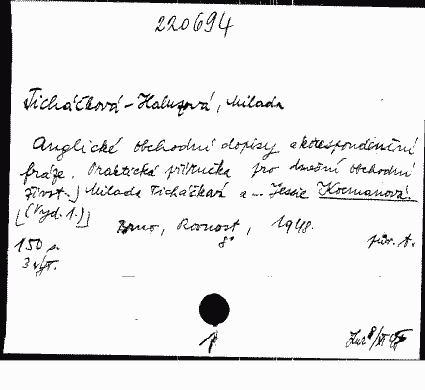 220694
Ticháčková-Halusová, Milada
Anglické obchodní dopisy a korespondenční
fráze. Praktická příručka pro dnešní obchodní
Milada Ticháčková a - Jessie Kocmanová.
[(Vyd. 1.)]
Brno, Rovnost, 1948.
150 s. 8° pův. t.
1